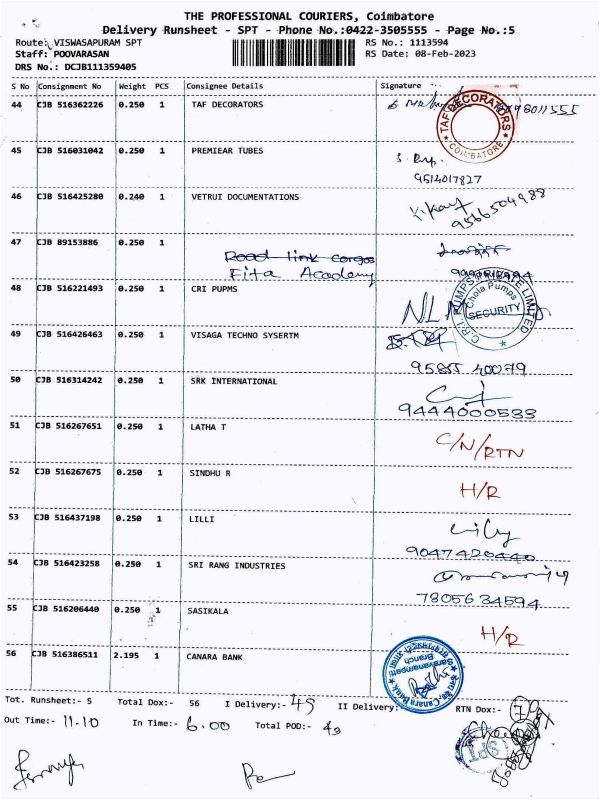 THE PROFESSIONAL COURIERS, Coimbatore
Delivery Runsheet - SPT - Phone No.:0422-3505555 - Page No.:5
Route: VISWASAPURAM SPT RS No.: 1113594
Staff: POOVARASAN RS Date: 08-Feb-2023
DRS No.: DCJB111359405
S No Consignment No Weight PCS Consignee Details Signature
44 CJB 516362226 0.250 1 TAF DECORATORS
TAF DECORATORS
COIMBATORE
45 CJB 516031042 0.250 1 PREMIEAR TUBES
9514017827
46 CJB 516425280 0.240 1 VETRUI DOCUMENTATIONS
9566504988
47 CJB 89153886 0.250 1
Road link corgos
Fita Academy
48 CJB 516221493 0.250 1 CRI PUPMS
C.R.I. PUMPS PRIVATE LIMITED
Chola Pumps
SECURITY
49 CJB 516426463 0.250 1 VISAGA TECHNO SYSERTM
95855 40079
50 CJB 516314242 0.250 1 SRK INTERNATIONAL
9444000533
51 CJB 516267651 0.250 1 LATHA T C/N/RTN
52 CJB 516267675 0.250 1 SINDHU R H/R
53 CJB 516437198 0.250 1 LILLI
9047420440
54 CJB 516423258 0.250 1 SRI RANG INDUSTRIES
7805634594
55 CJB 516206440 0.250 1 SASIKALA H/R
56 CJB 516386511 2.195 1 CANARA BANK
Canara Bank
Saravanampatti
Branch
Tot. Runsheet:- S Total Dox:- 56 I Delivery:- 49 II Delivery:- RTN Dox:- 7
Out Time:- 11.10 In Time:- 6.00 Total POD:- 49
SPT